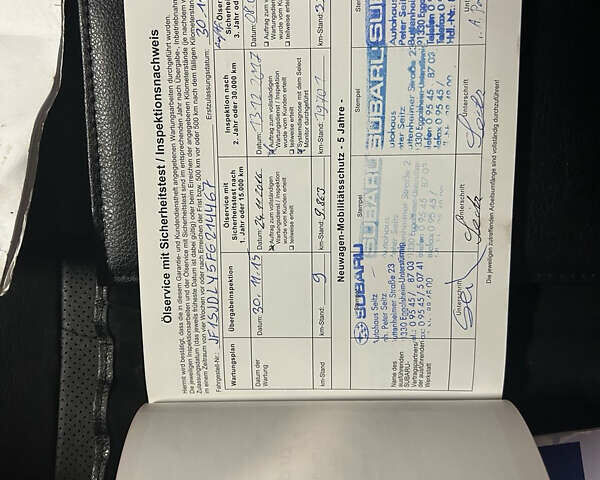 Ölservice mit Sicherheitstest / Inspektionsnachweis
Hiermit wird bestätigt, dass die in diesem Garantie- und Kundendienstheft angegebenen Wartungsarbeiten durchgeführt wurden.
Die jeweiligen Inspektionsarbeiten und der Ölservice mit Sicherheitstest sind im entsprechenden Jahr nach Übergabe-, Inbetriebnahme
Zulassungsdatum (das jeweils früheste Datum ist dabei gültig) oder beim Erreichen der angegebenen Kilometerstände (je nachdem
in einem Zeitraum von vier Wochen vor oder nach Erreichen der Frist bzw. 500 km vor oder 500 km nach dem fälligen Kilometerstand
Fahrgestell-Nr.: JF1SJDLY5FG214467 Erstzulassungsdatum: 30.1
Wartungsplan
Übergabeinspektion
Ölservice mit
Sicherheitstest nach
1. Jahr oder 15.000 km
Inspektion nach
2. Jahr oder 30.000 km
Ölser
Sicherhe
3. Jahr od
Datum der
Wartung
Datum:
30.11.15
Datum: 24.11.2016
Auftrag zum vollständigen
Wartungsdienst / Inspektion
wurde vom Kunden erteilt
teilweise erteilt
Datum: 13.12.2017
Auftrag zum vollständigen
Wartungsdienst / Inspektion
wurde vom Kunden erteilt
teilweise erteilt
Systemdiagnose mit dem Select
Monitor durchgeführt
Datum:
Auftrag zum v
Wartungsdien
wurde vom Ku
teilweise erte
km-Stand
km-Stand: 9
km-Stand: 9.863
km-Stand: 19701
km-Stand: 2
Neuwagen-Mobilitätsschutz - 5 Jahre -
Name des
ausführenden
SUBARU-
Vertragspartners/
der ausführenden
Werkstatt
Stempel
SUBARU
Autohaus Seitz
Inh. Peter Seitz
Buttenheimer Straße 23
91330 Eggolsheim-Unterstürmig
Tel.: 0 95 45 / 87 03
Fax: 0 95 45 / 5 07 41
Unterschrift
Stempel
SUBARU
Unterschrift
Stempel
SUBARU
Autohaus
Peter Seitz
Buttenheimer Straße 2
Telefon 0 95 45 / 87 03
Unterschrift
Stempel
SUBARU
Autohaus
Peter Seitz
Unterschrift
Die jeweiligen zutreffenden Arbeitsumfänge sind vollständig durchzuführen!